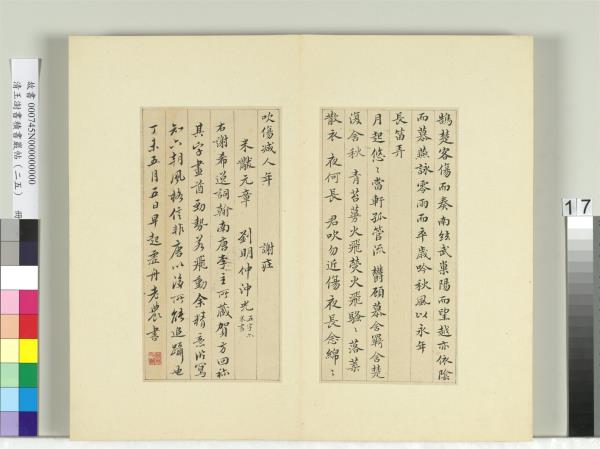 鵠楚客傷而奏南絃武巢陽而望越亦依陰
而慕燕詠零雨而卒歲吟秋風以永年
長笛弄
月起悠〻當軒孤管流 鬱顧慕含羈含楚
復含秋 青苔蔓火飛熒火飛騷〻落葉
散衣 夜何長 君吹勿近傷夜長念綿〻
吹傷減人年
謝莊
米黻元章 劉明仲沖光
右謝希逸詞翰南唐李主所藏賀方回称
其字畫遒勁勢若飛動余精意臨寫
知六朝風格信非唐以後所能追躡也
丁未五月五日早起虛舟老農書
故書 000745N000000000
清王澍書積書巖帖（二五） 冊
17